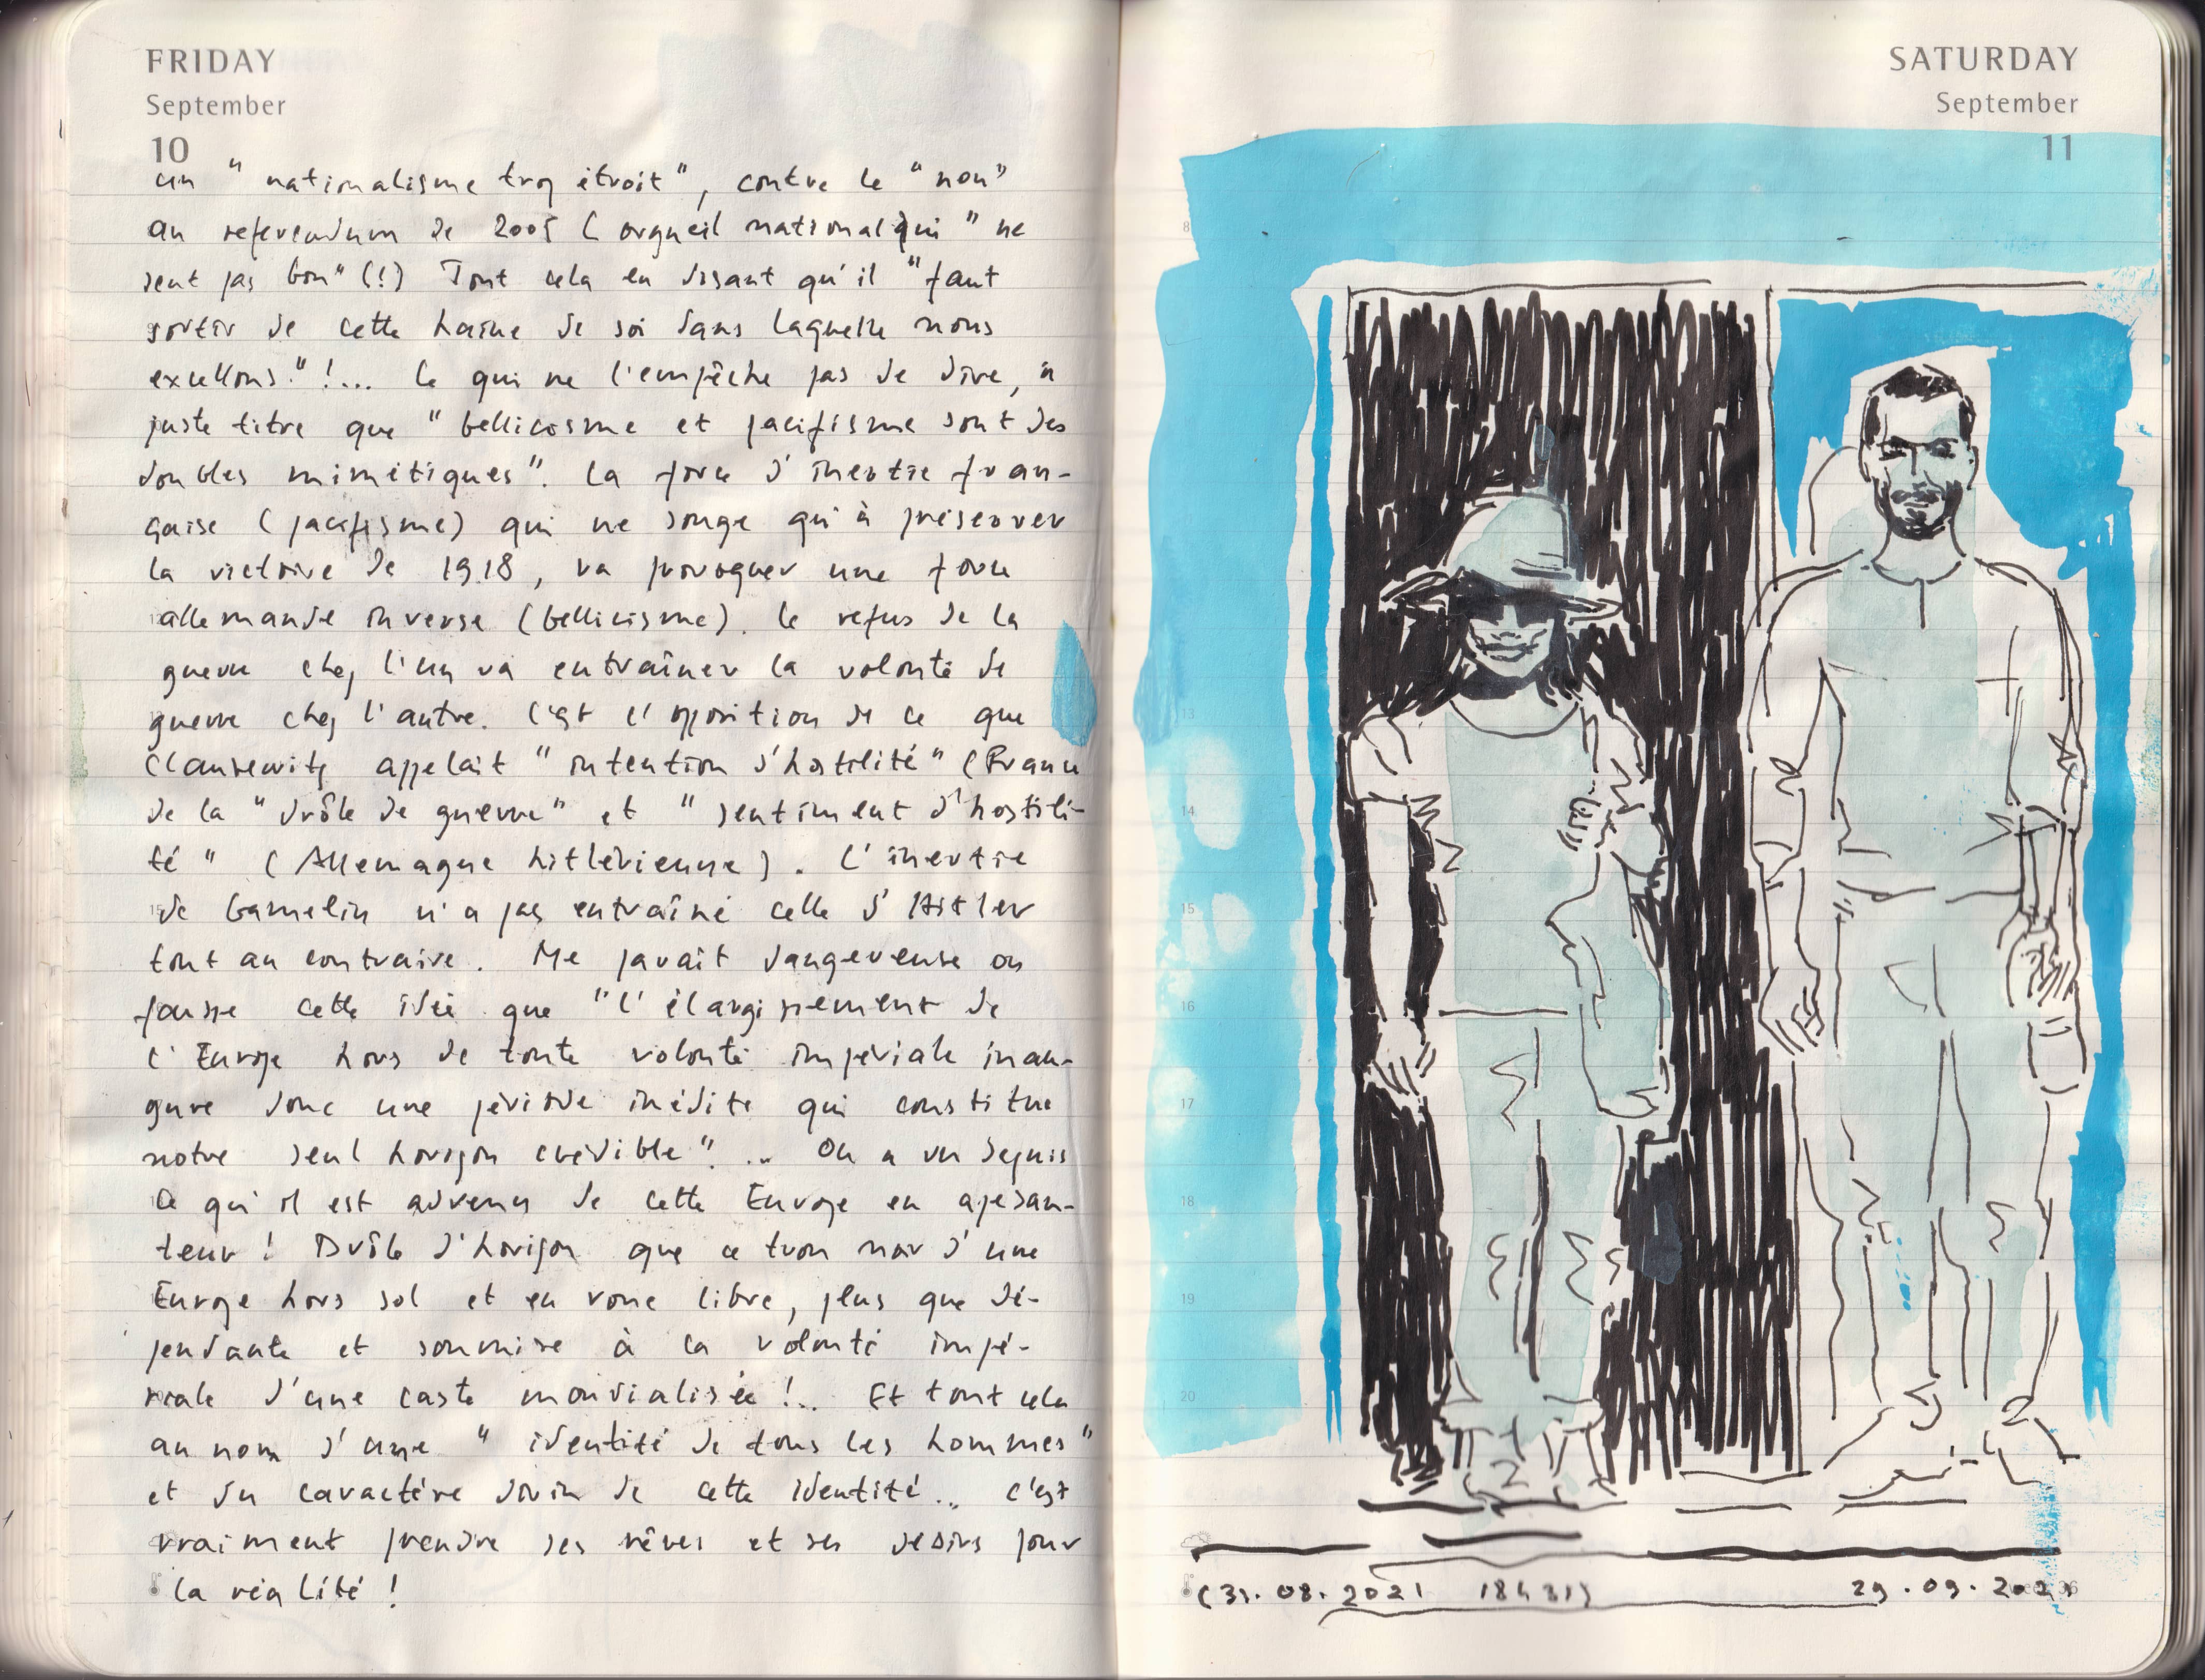 FRIDAY
September
10
un " nationalisme trop étroit ", contre le " non "
au referendum de 2005 ( orgueil national qui " ne
sent pas bon " (!) Tout cela en disant qu'il " faut
sortir de cette haine de soi dans laquelle nous
excellons. " !... Ce qui ne l'empêche pas de dire, à
juste titre que " bellicisme et pacifisme sont des
doubles mimétiques ". La force d'inertie fran-
çaise ( pacifisme) qui ne songe qu'à préserver
la victoire de 1918, va provoquer une force
allemande inverse (bellicisme). Le refus de la
guerre chez l'un va entraîner la volonté de
guerre chez l'autre. C'est l'opposition de ce que
Clausewitz appelait " intention d'hostilité " ( France
de la " drôle de guerre " et " sentiment d'hostili-
té " ( Allemagne hitlérienne ) . L'inertie
de Gamelin n'a pas entraîné celle d'Hitler
tout au contraire. Me parait dangereuse ou
fausse cette idée que " l'élargissement de
l'Europe hors de toute volonté impériale inau-
gure donc une période inédite qui constitue
notre seul horizon crédible " ... On a vu depuis
ce qu'il est advenu de cette Europe en apesan-
teur ! Drôle d'horizon que ce trou noir d'une
Europe hors sol et en roue libre, plus que dé-
pendante et soumise à la volonté impé-
riale d'une caste mondialisée !... Et tout cela
au nom d'une " identité de tous les hommes "
et du caractère divin de cette identité... C'est
vraiment prendre ses rêves et ses desirs pour
la réalité !
SATURDAY
September
11
8
13
14
15
16
17
18
19
20
(31.08.2021 18431) 29.09.2021